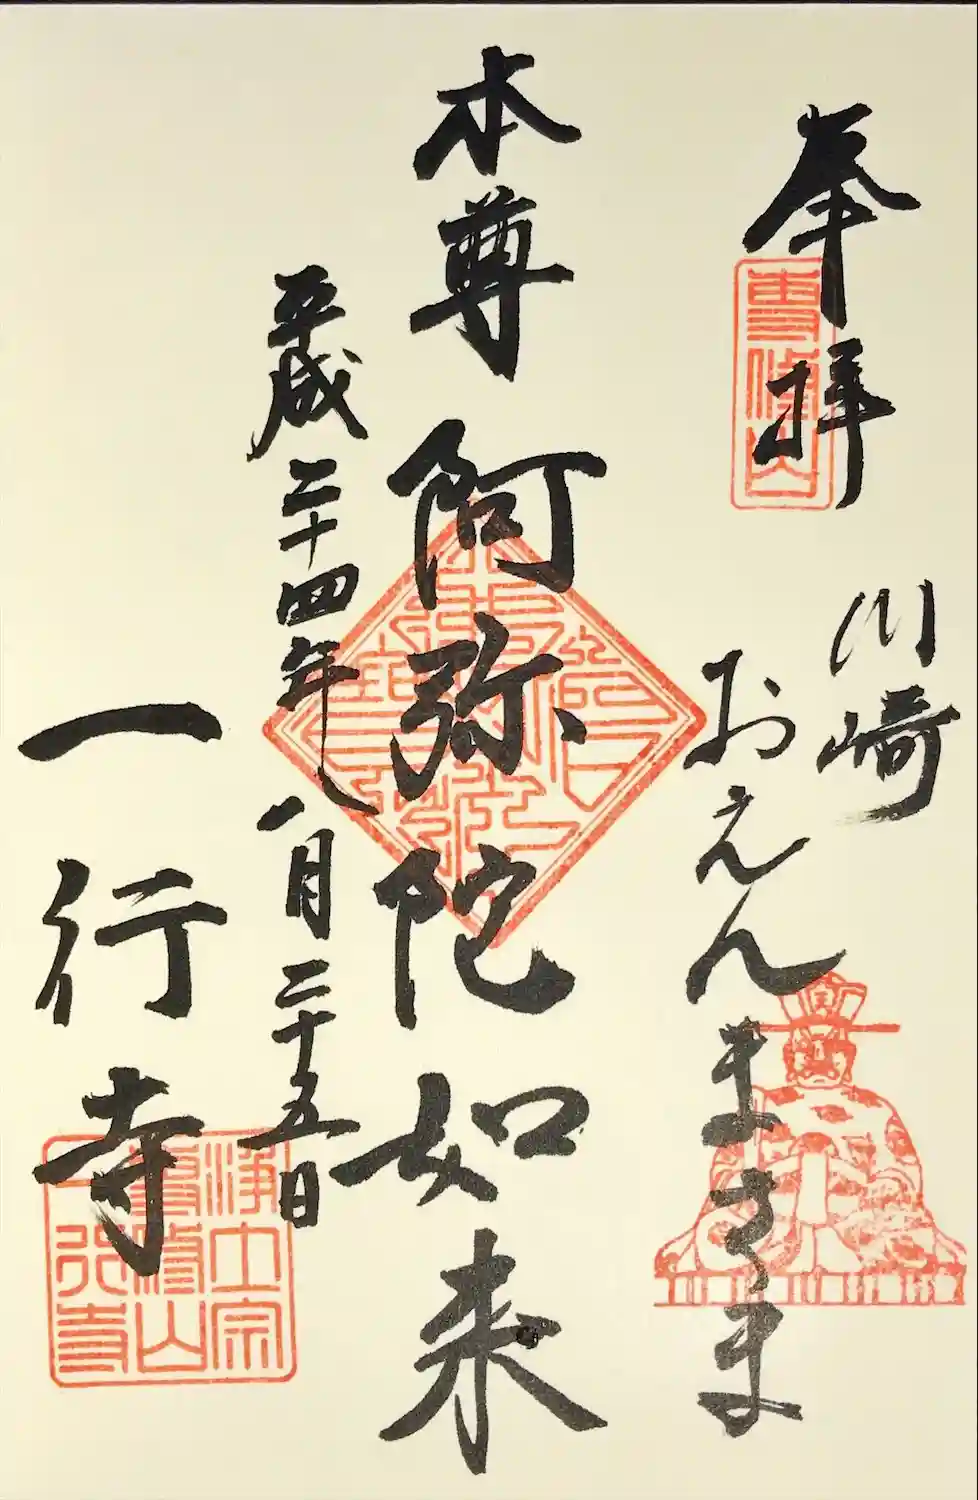 奉拝
専修山
川崎
おえんまさま
本尊 阿弥陀如来
平成二十四年八月二十五日
一行寺
浄土宗
専修山
一行寺